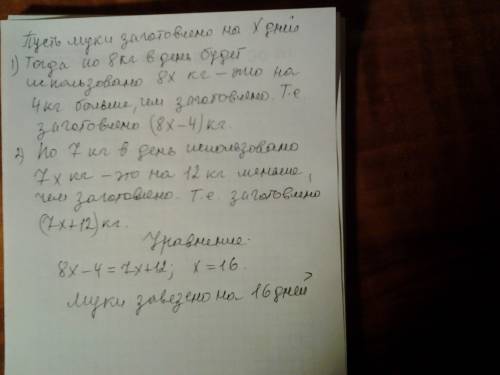 Пусть муки заготовлено на x дней
1) Тогда по 8кг в день будет
использовано 8x кг – это на
4кг больше, чем заготовлено. Т.е
заготовлено (8x–4)кг.
2) По 7 кг в день использовано
7x кг – это на 12 кг меньше,
чем заготовлено. Т.е. заготовлено
(7x+12)кг.
Уравнение:
8x–4=7x+12; x=16.
Муки завезено на 16 дней